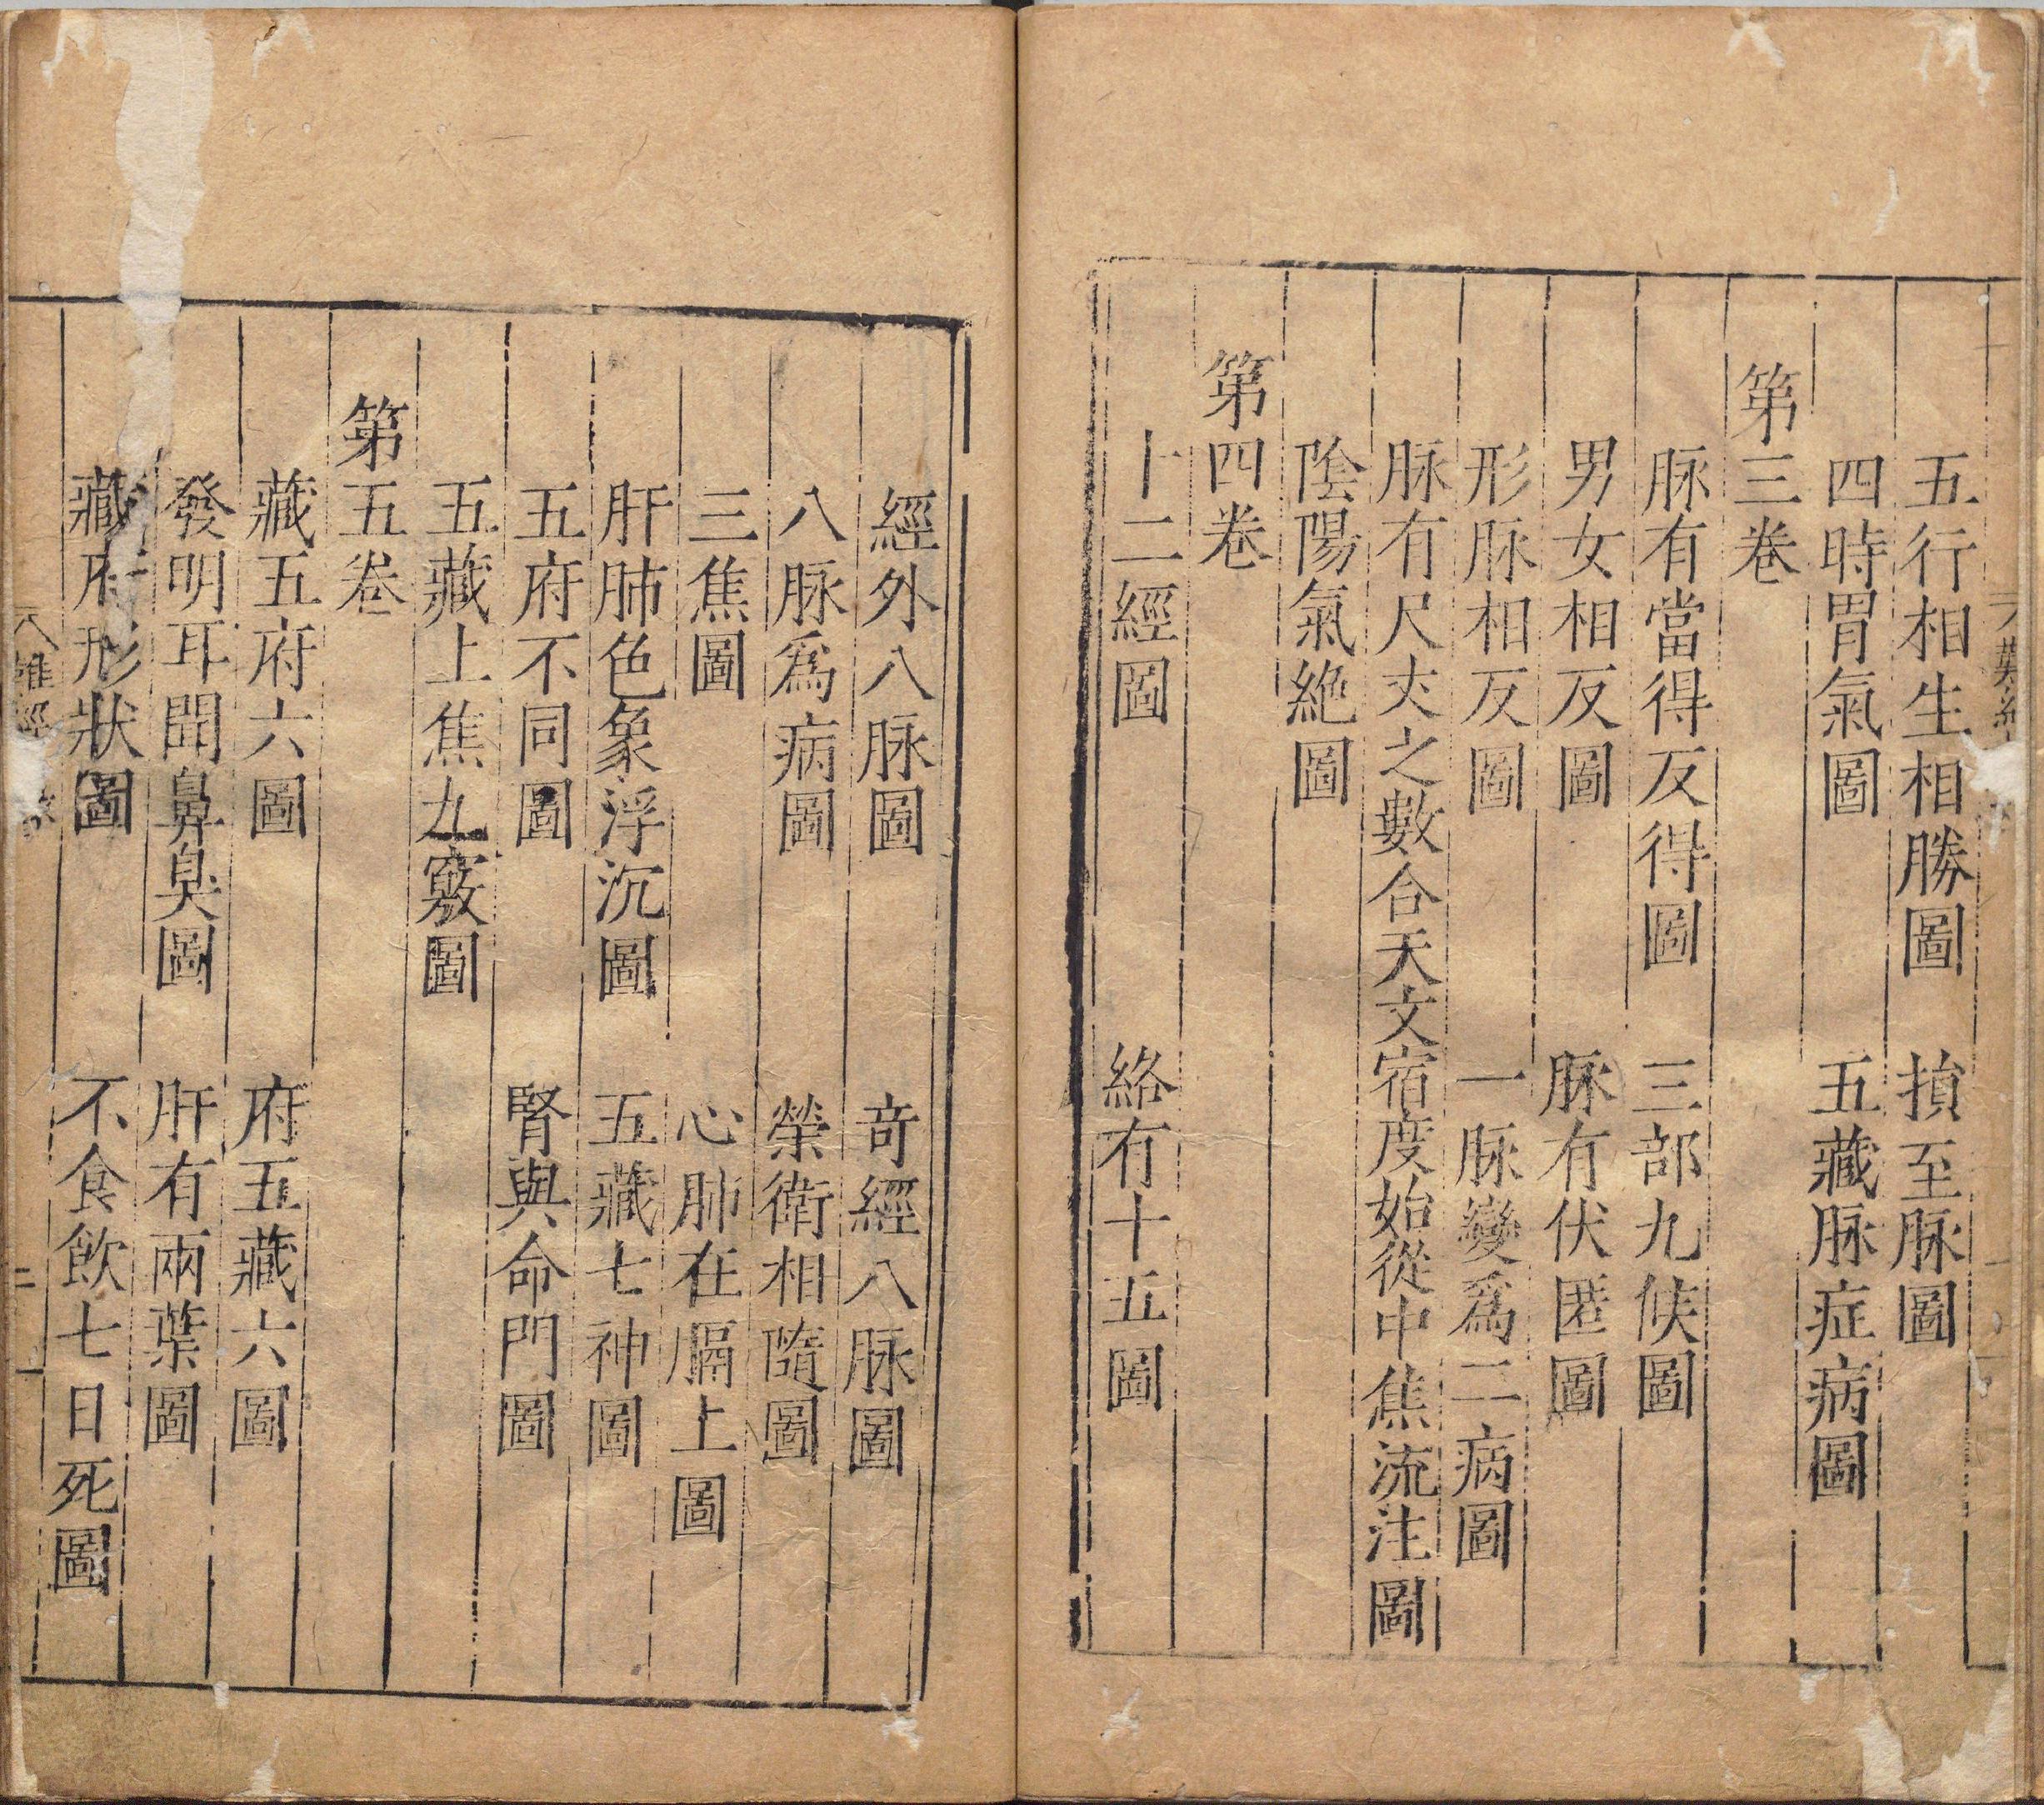 五行相生相勝圖　損至脉圖
四時胃氣圖　五藏脉症病圖
第三卷
脉有當得反得圖　三部九候圖
男女相反圖　脉有伏匿圖
形脉相反圖　一脉變爲二病圖
脉有尺夫之數合天文宿度始從中焦流注圖
陰陽氣絶圖
第四卷
十二經圖　絡有十五圖
經外八脉圖　奇經八脉圖
八脉爲病圖　榮衛相隨圖
三焦圖　心肺在膈上圖
肝肺色象浮沉圖　五藏七神圖
五府不同圖　腎與命門圖
五藏上焦九竅圖
第五卷
藏五府六圖　府五藏六圖
發明耳聞鼻臭圖　肝有兩葉圖
藏府形狀圖　不食飲七日死圖
難經
二